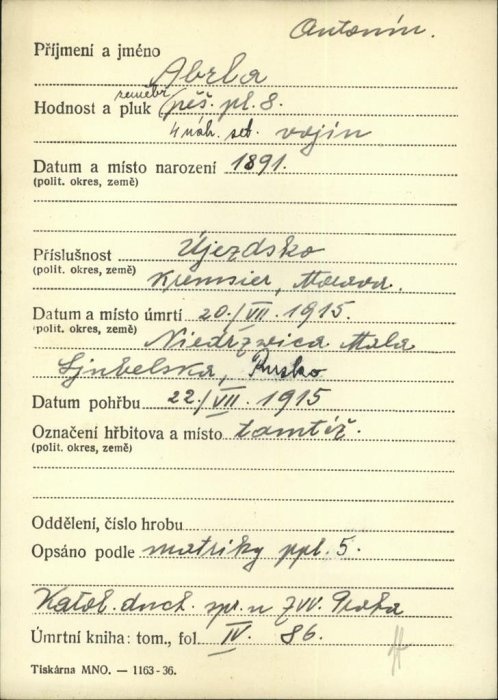 Antonín.
Příjmení a jméno
Abrla
Hodnost a pluk zeměbr. pěš. pl. 8.
4 náh. set. vojín
Datum a místo narození 1891.
(polit. okres, země)
Příslušnost Újezdsko
(polit. okres, země) Kremsier, Morava.
Datum a místo úmrtí 20./VII. 1915.
(polit. okres, země) Niedrzwica Mala
Ljubelska, Rusko
Datum pohřbu 22./VII. 1915
Označení hřbitova a místo tamtéž.
(polit. okres, země)
Oddělení, číslo hrobu
Opsáno podle matriky ppl. 5.
Katol. duch. spr. u ZVV. Praha
Úmrtní kniha: tom., fol. IV. 86.
Tiskárna MNO. — 1163-36.